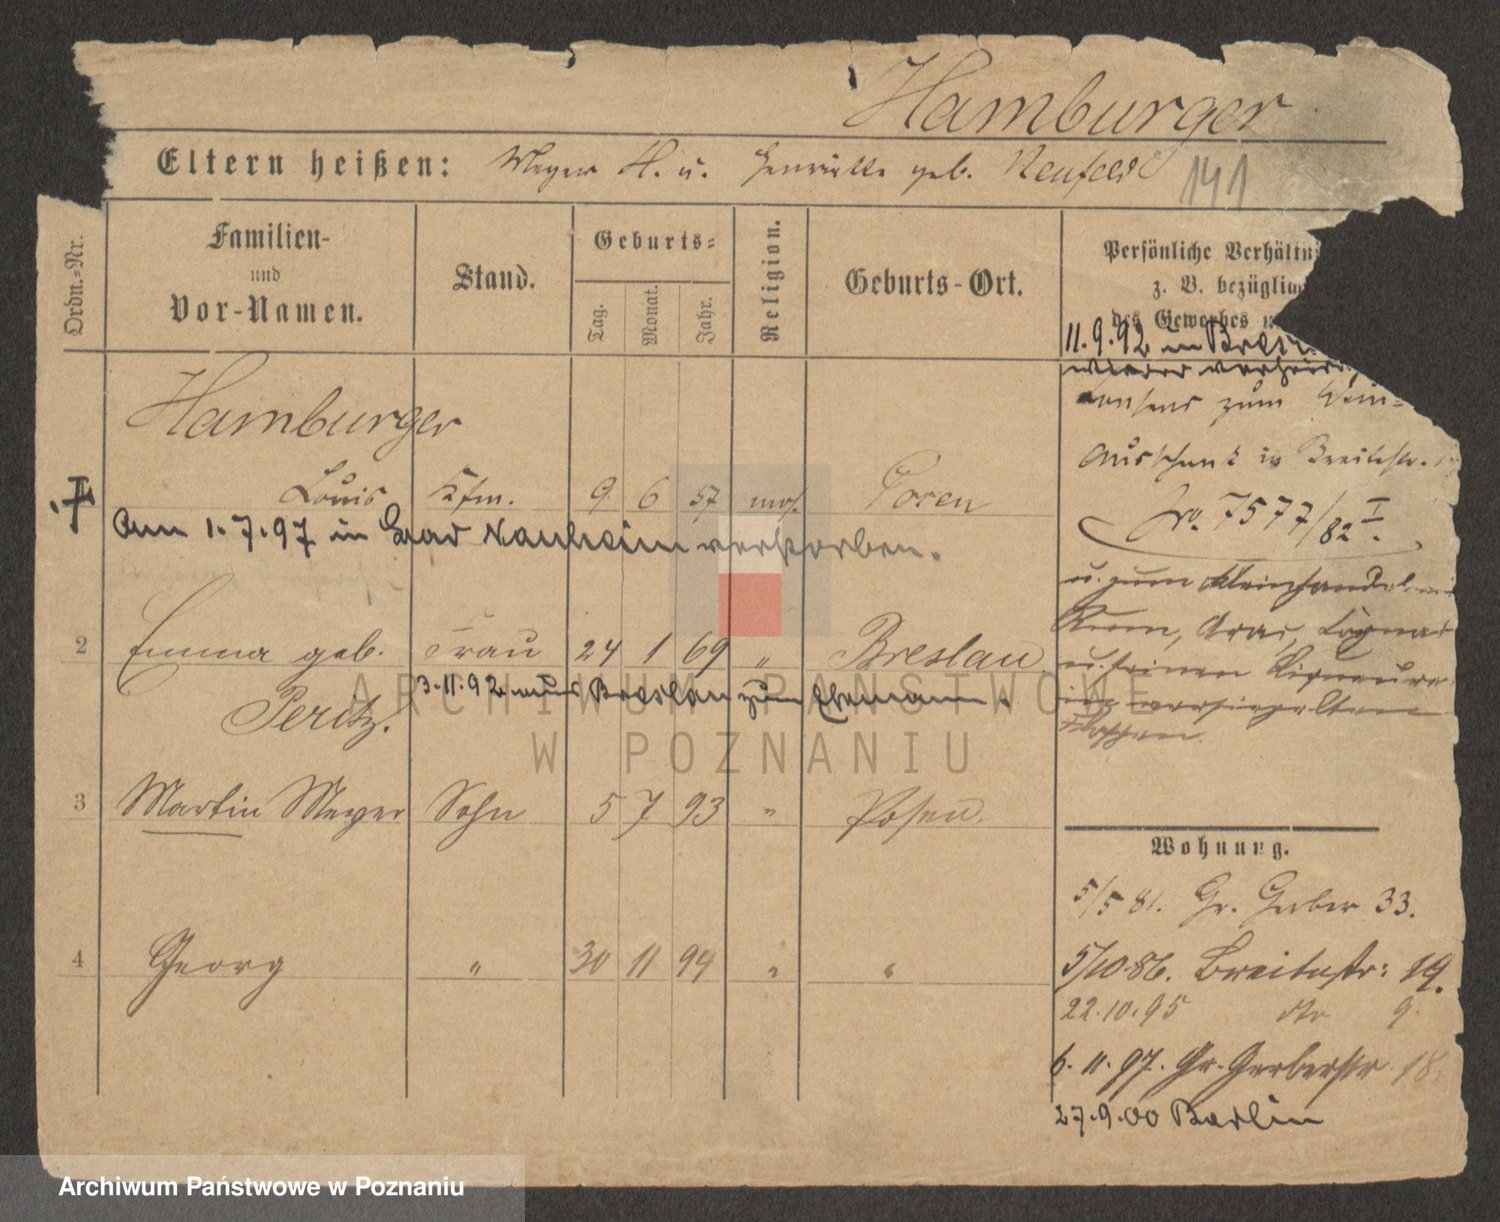 Hamburger
Eltern heißen: Meyer H. u. Henriette geb. Neufeld
141
Ordn.-Nr.
Familien-
und
Vor-Namen.
Stand.
Geburts-
Tag.
Monat.
Jahr.
Religion.
Geburts-Ort.
Persönliche Verhältni
z. B. bezüglich
des Gewerbes
11.9.92 in Bresl
wieder verheir
Consens zum Wein-
Ausschank in Breitestr.
No. 7577/82 I.
u. zum Kleinhandel mit
Rum, Arac, Cognac
u. feinen Liqueuren
in versiegelten
Flaschen.
Hamburger
Louis Kfm. 9 6 57 mos. Posen
Am 1.7.97 in Bad Nauheim verstorben.
2 Emma geb. Frau 24 1 69 " Breslau
3.11.92 aus Breslau zum Ehemann.
Peritz.
3 Martin Meyer Sohn 5 7 93 " Posen.
4 Georg " 30 11 94 " "
Wohnung.
5/5 81. Gr. Gerber 33.
5/10.86. Breitestr: 19.
22.10.95 dto 9.
6.11.97. Gr. Gerberstr 18
27.9.00 Berlin
ARCHIWUM PAŃSTWOWE
W POZNANIU
Archiwum Państwowe w Poznaniu